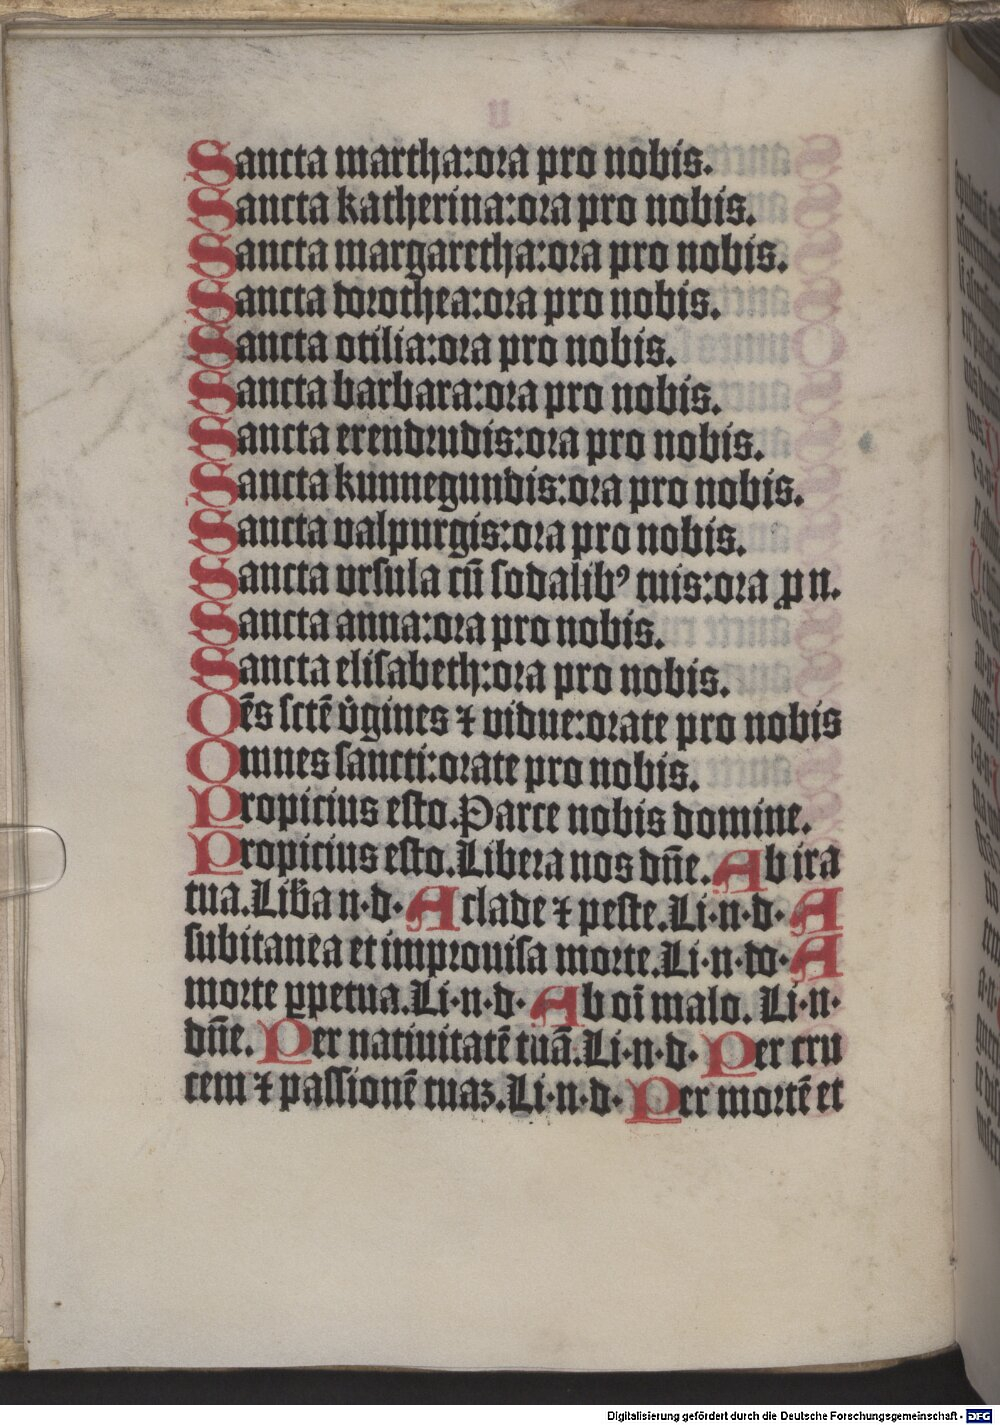 Sancta martha:ora pro nobis.
Sancta katherina:ora pro nobis.
Sancta margaretha:ora pro nobis.
Sancta dorothea:ora pro nobis.
Sancta otilia:ora pro nobis.
Sancta barbara:ora pro nobis.
Sancta erendrudis:ora pro nobis.
Sancta kunnegundis:ora pro nobis.
Sancta valpurgis:ora pro nobis.
Sancta vrſula cū ſodalibꝰ tuis:ora ꝓ n.
Sancta anna:ora pro nobis.
Sancta eliſabeth:ora pro nobis.
Oēs ſctē v̓gines ⁊ vidue:orate pro nobis
Omnes ſancti:orate pro nobis.
Propicius eſto.Parce nobis domine.
Propicius eſto.Libera nos dn̄e. Ab ira
tua.Lib̓a n·d· A clade ⁊ peſte.Li·n·d· A
ſubitanea et improuiſa morte.Li·n·do· A
morte ꝑpetua.Li·n·d· Ab oī malo. Li·n·
dn̄e. Per natiuitatē tuā.Li·n·d· Per cru
cem ⁊ paſſionē tuaꝫ.Li·n·d· Per mortē et
Digitalisierung gefördert durch die Deutsche Forschungsgemeinschaft - DFG